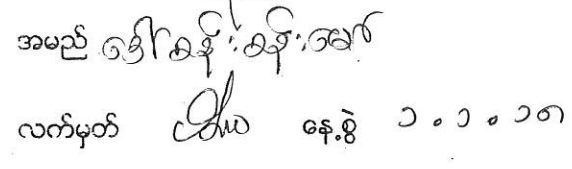 အမည် ဒေါ်ခန်းခန်းမော်
လက်မှတ် နေ့စွဲ ၁.၁.၁၈